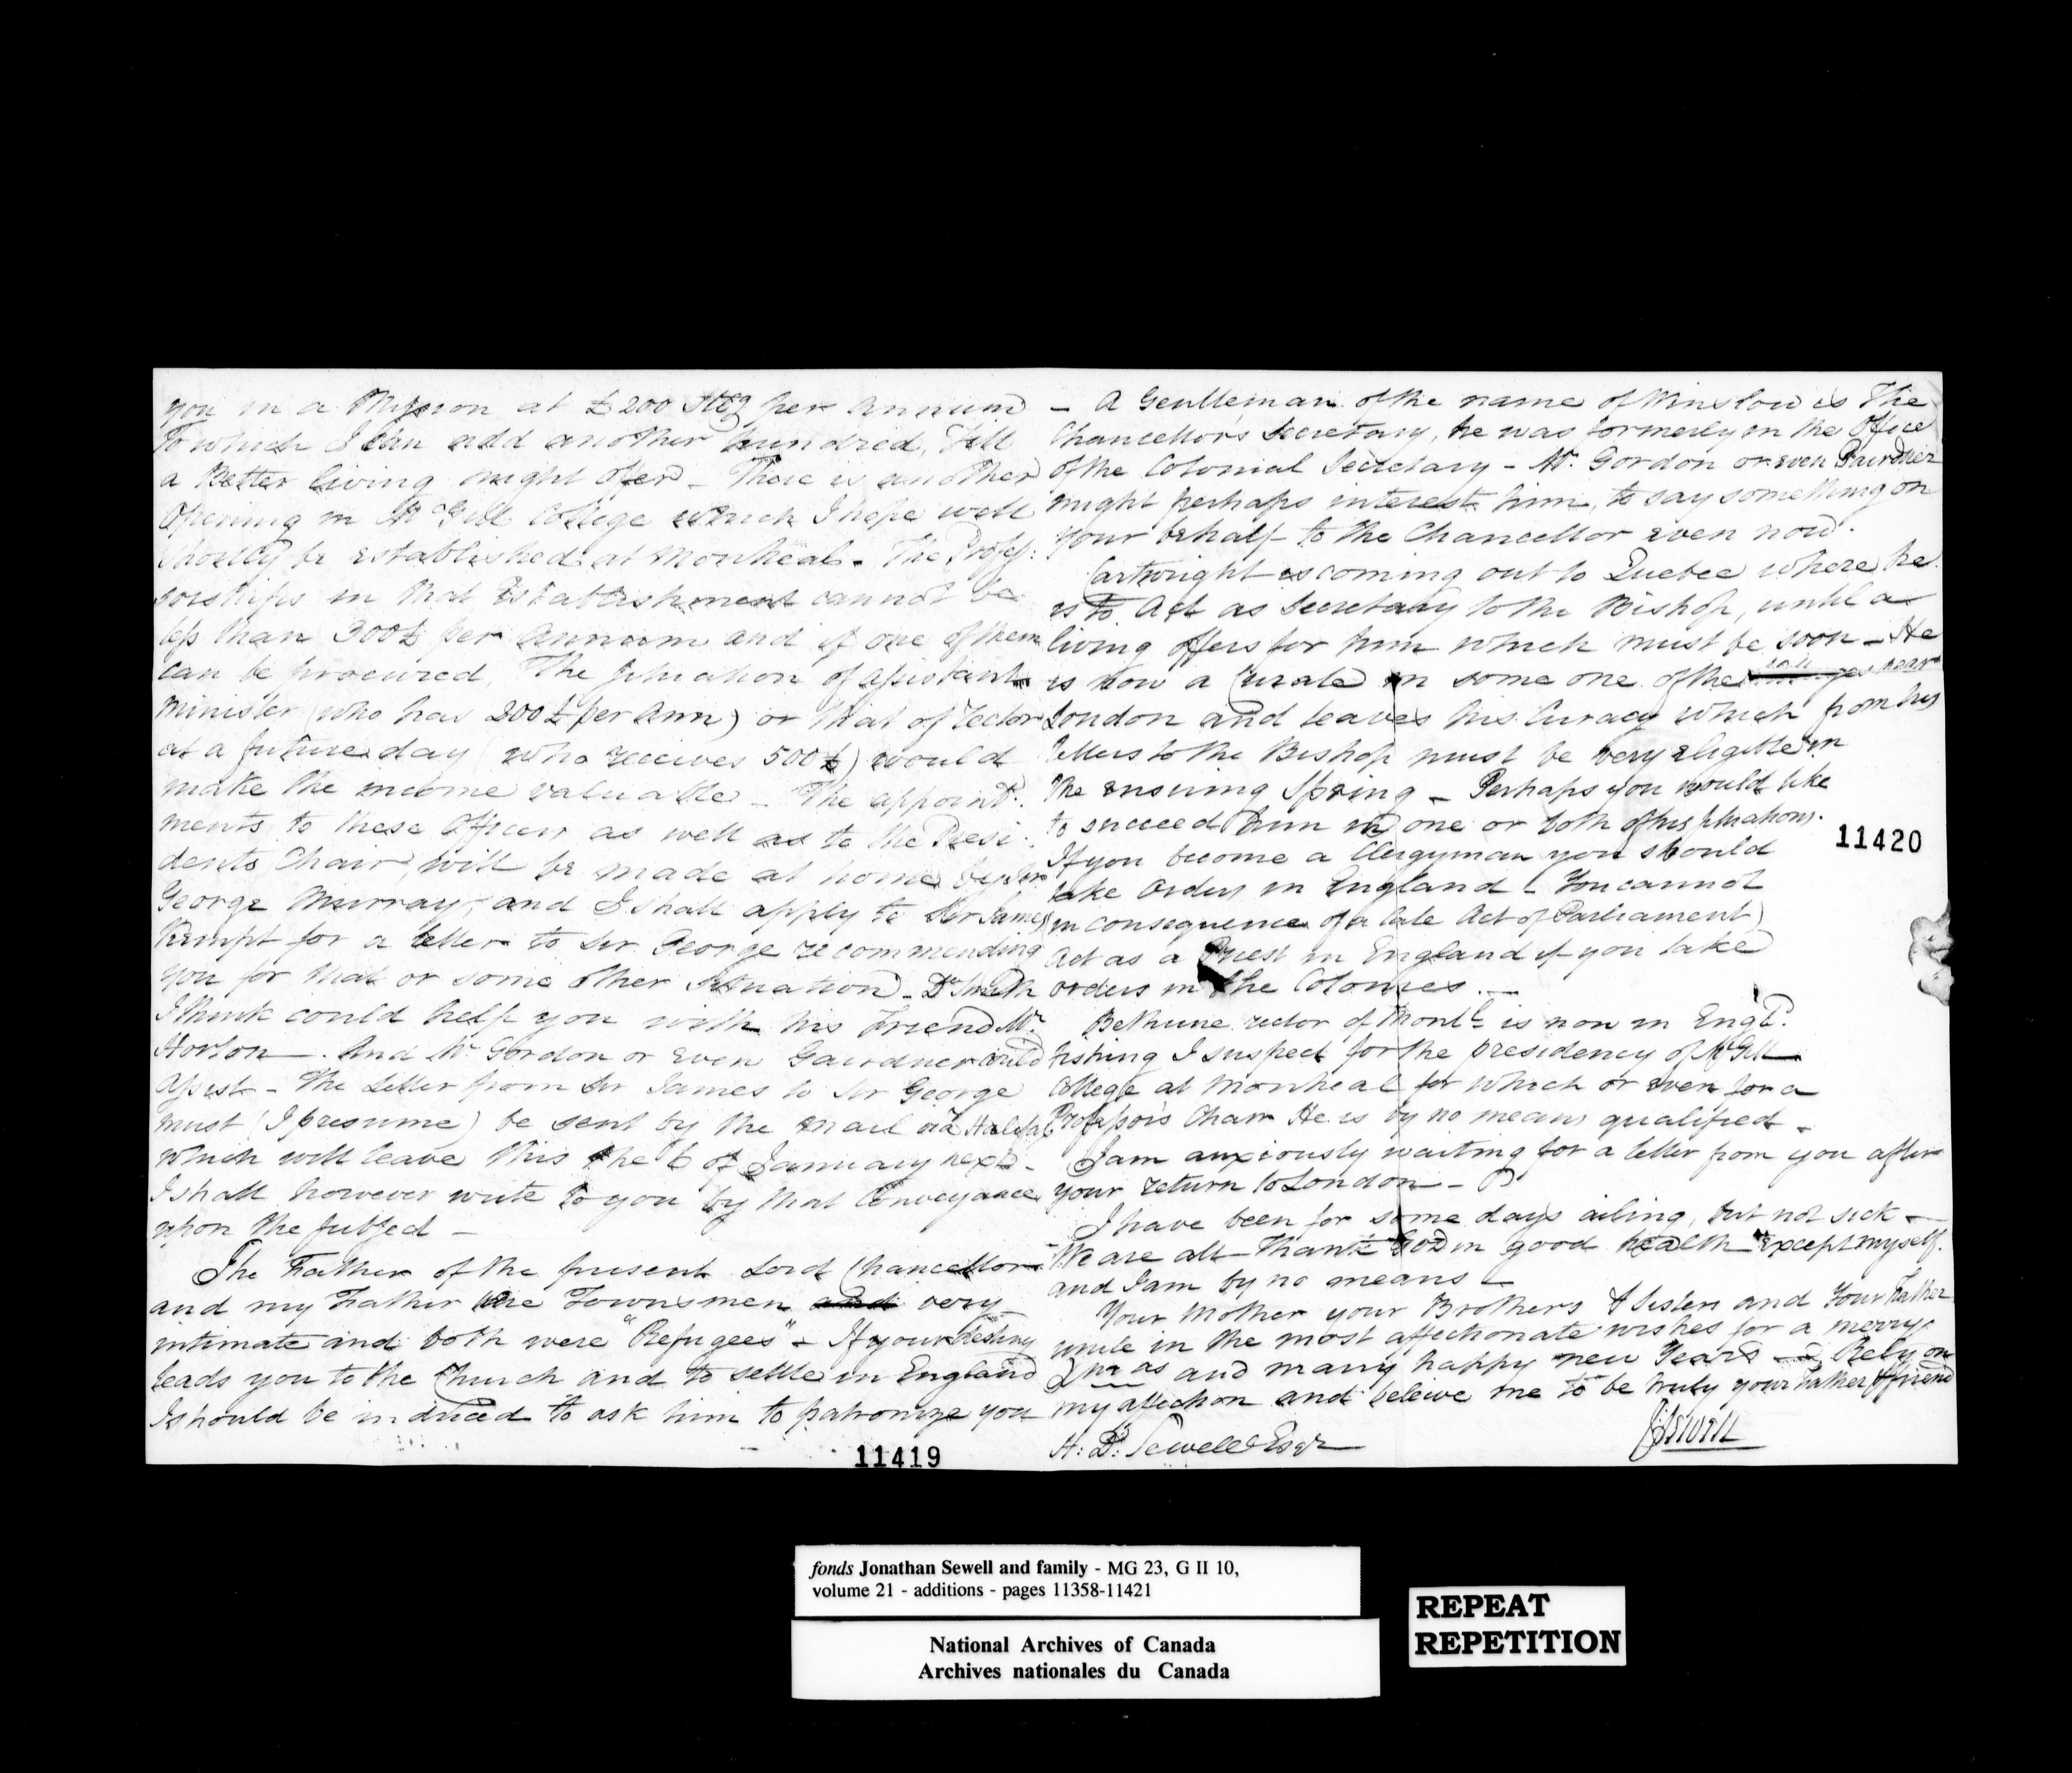 you in a Mission at £200 Stg per Annum
to which I can add another hundred, Till
a Better living might Offer - There is another
Opening in McGill College which I hope will
shortly be established at Montreal. The Profes:
sorships in that Establishment cannot be
less than 300£ per Annum and if one of them
can be procured, The situation of assistant
Minister (who has 200£ per Ann) or that of rector
at a future day (who receives 500£) would
make the income valuable - The appoint:
ments to these Offices as well as to the Presi:
dents Chair, will be made at home by Sir
George Murray, and I shall apply to Sir James
Kempt for a letter to Sir George recommending
you for that or some other situation - Dr Smith
I think could help you with his Friend Mr.
Horton - And Mr Gordon or even Gairdner could
assist - The Letter from Sir James to Sir George
must (I presume) be sent by the mail via Halifax
which will leave this the 6 of January next -
I shall however write to you by that Conveyance
upon the subject -
The Father of the present Lord Chancellor
and my Father were Townsmen and very
intimate and both were "Refugees" - If your destiny
leads you to the Church and to settle in England
I should be induced to ask him to patronize you
11419
- A Gentleman of the name of Winslow is The
Chancellors Secretary, he was formerly in the Office
of the Colonial Secretary - Mr. Gordon or even Gairdner
might perhaps interest him, to say something on
your behalf to the Chancellor even now.
Cartwright is coming out to Quebec where he
is to Act as Secretary to the Bishop, until a
living offers for him which must be soon - He
is now a Curate in some one of the near
London and leaves his Curacy which from his
letters to the Bishop must be very eligible in
the ensuing Spring - Perhaps you would like
to succeed him in one or both of his situations.
If you become a Clergyman you should
take Orders in England - You cannot
in consequence of a late Act of Parliament)
Act as a Priest in England if you take
orders in the Colonies. -
11420
Bethune rector of Montl is now in Engd.
fishing I suspect for the presidency of McGill
College at Montreal for which or even for a
Professors Chair He is by no means qualified -
I am anxiously waiting for a letter from you after
your return to London -
I have been for some days ailing, but not sick -
We are all - Thank God in good health except myself.
and I am by no means -
Your Mother your Brothers & Sisters and Your Father
unite in the most affectionate wishes for a merry
Xmas and many happy new Years - Rely on
my affection and beleive me to be truly your Father & friend
J Sewell
H: D: Sewell Esqr
fonds Jonathan Sewell and family - MG 23, G II 10,
volume 21 - additions - pages 11358-11421
National Archives of Canada
Archives nationales du Canada
REPEAT
REPETITION